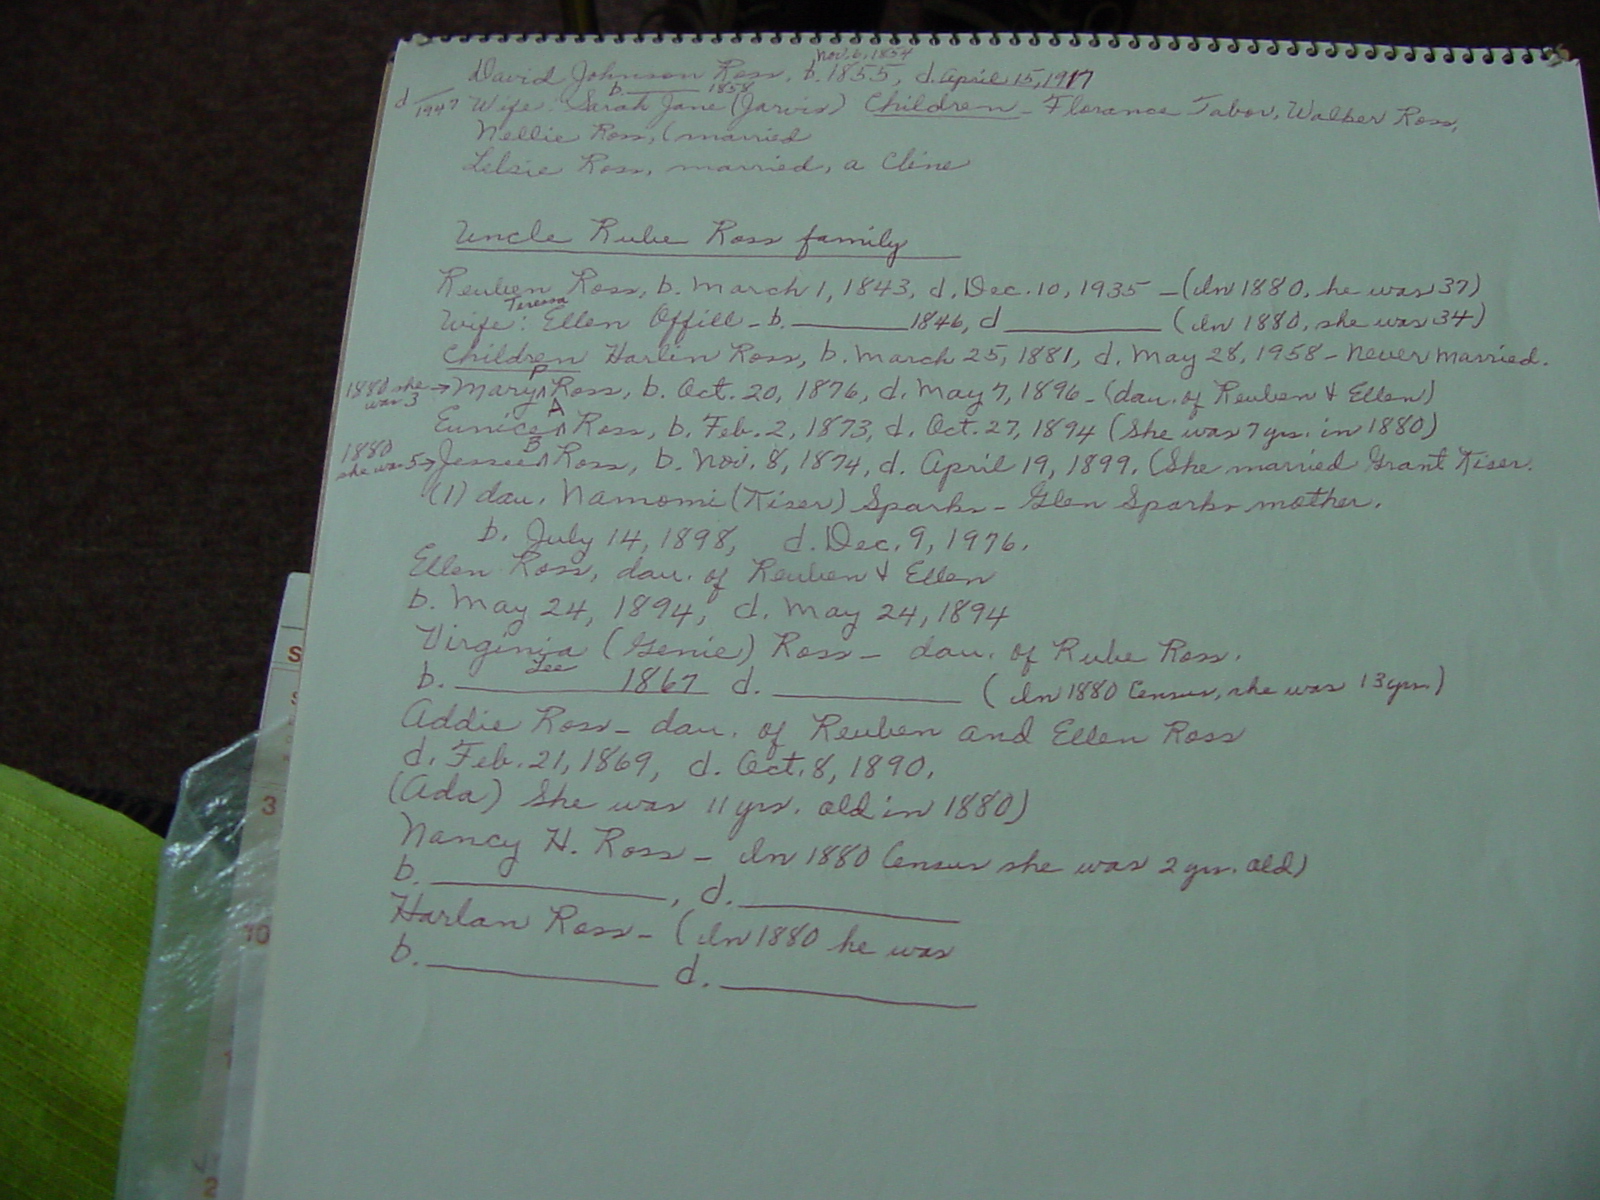 Nov. 6, 1854
David Johnson Ross, b. 1855, d. April 15, 1917
b.______1858
d ____ 1947 Wife: Sarah Jane (Jarvis) Children - Florance Tabor, Walker Ross,
Nellie Ross, (married
Lelsie Ross, married, a Cline
Uncle Rube Ross family
Reuben Ross, b. March 1, 1843, d. Dec. 10, 1935 - (In 1880, he was 37)
Teressa
Wife: Ellen Offill - b. ________ 1846, d __________ (In 1880, she was 34)
Children Harlin Ross, b. March 25, 1881, d. May 28, 1958 - Never married.
1880 she was 3 → Mary P Ross, b. Oct. 20, 1876, d. May 7, 1896 - (dau. of Reuben & Ellen)
Eunice A Ross, b. Feb. 2, 1873, d. Oct. 27, 1894 (She was 7 yrs. in 1880)
1880 she was 5 → Jessie B Ross, b. Nov. 8, 1874, d. April 19, 1899. (She married Grant Kiser.
(1) dau. Namomi (Kiser) Sparks - Glen Sparks mother.
b. July 14, 1898, d. Dec. 9, 1976.
Ellen Ross, dau. of Reuben & Ellen
b. May 24, 1894, d. May 24, 1894
Virginia (Genie) Ross - dau. of Rube Ross.
Lee
b. ____________ 1867 d. ____________ (In 1880 Census, she was 13 yrs.)
Addie Ross - dau. of Reuben and Ellen Ross
d. Feb. 21, 1869, d. Oct. 8, 1890.
(Ada) She was 11 yrs. old in 1880)
Nancy H. Ross - In 1880 Census she was 2 yrs. old)
b. ______________, d. ______________
Harlan Ross - (In 1880 he was
b. ______________ d. ______________
S
3
10
2